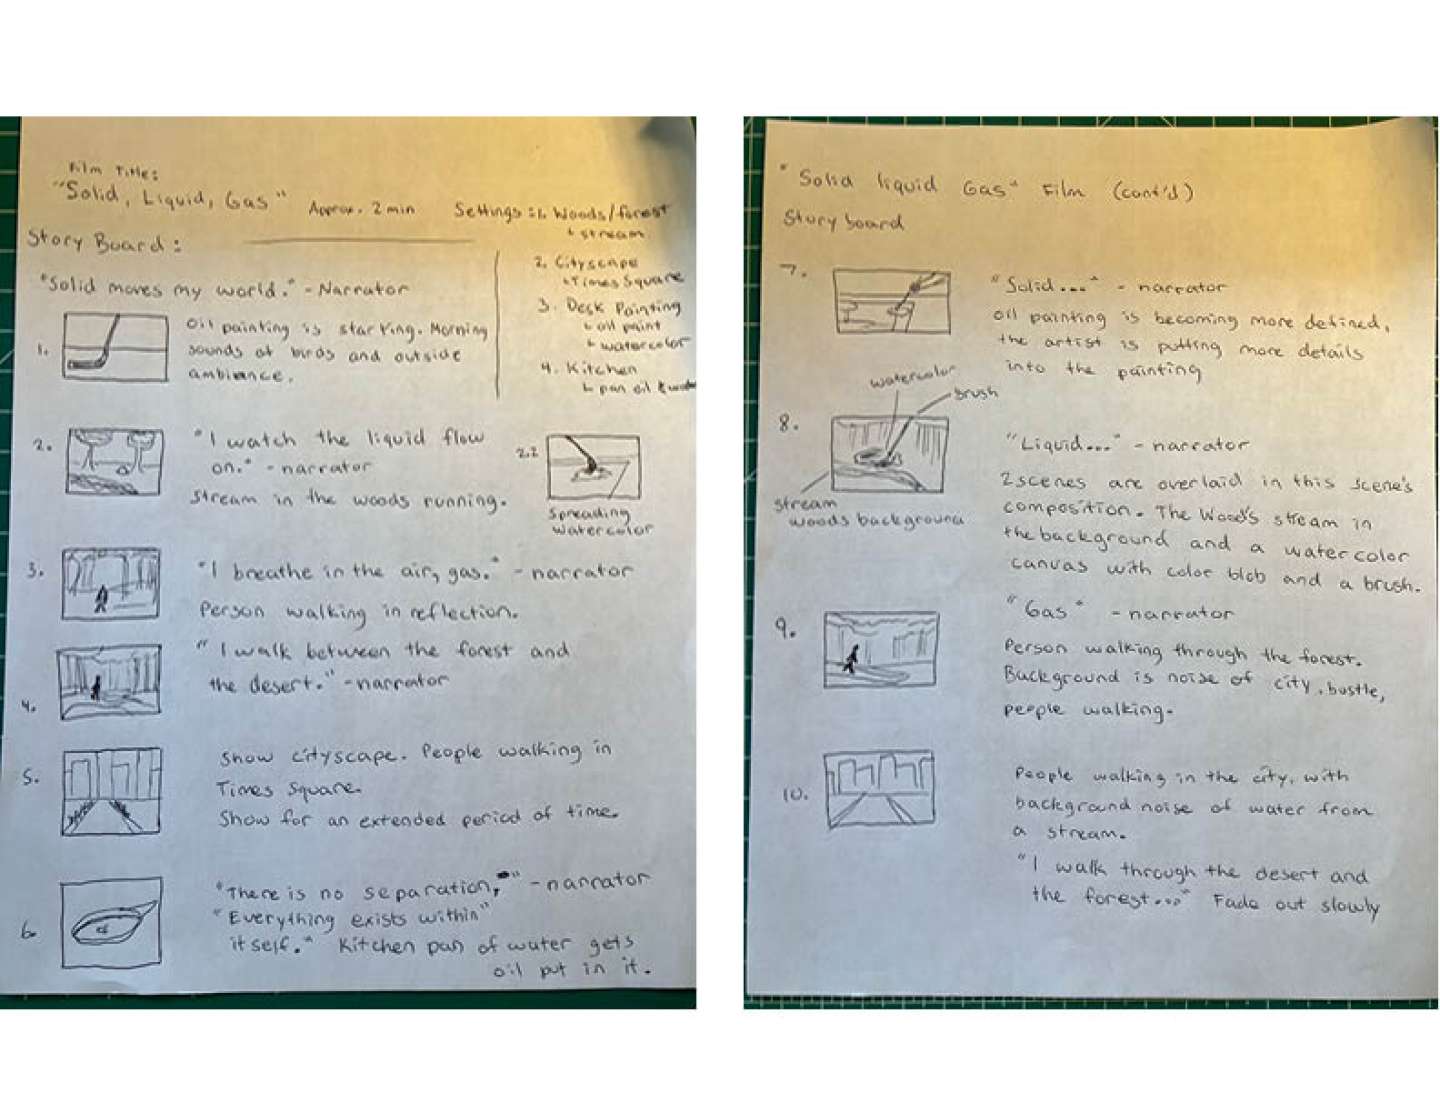 Film Title:
"Solid, Liquid, Gas"
Approx. 2 min
Settings: 1. Woods/forest
↳ stream
2. Cityscape
↳ Times Square
3. Desk Painting
↳ oil paint
↳ watercolor
4. Kitchen
↳ pan oil &
Story Board:
"Solid moves my world." - Narrator
1.
Oil painting is starting. Morning
sounds of birds and outside
ambiance.
2.
"I watch the liquid flow
on." - narrator
Stream in the woods running.
2.2
Spreading
watercolor
3.
"I breathe in the air, gas." - narrator
Person walking in reflection.
4.
"I walk between the forest and
the desert." - narrator
5.
Show cityscape. People walking in
Times Square.
Show for an extended period of time.
6.
"There is no separation," - narrator
"Everything exists within"
itself." Kitchen pan of water gets
oil put in it.
"Solid liquid Gas" Film (cont'd)
Story board
7.
"Solid..." - narrator
Oil painting is becoming more defined,
the artist is putting more details
into the painting
8.
watercolor
brush
stream
woods background
"Liquid..." - narrator
2 scenes are overlaid in this scene's
composition. The Wood's stream in
the background and a watercolor
canvas with color blob and a brush.
9.
"Gas" - narrator
Person walking through the forest.
Background is noise of city, bustle,
people walking.
10.
People walking in the city, with
background noise of water from
a stream.
"I walk through the desert and
the forest..." Fade out slowly